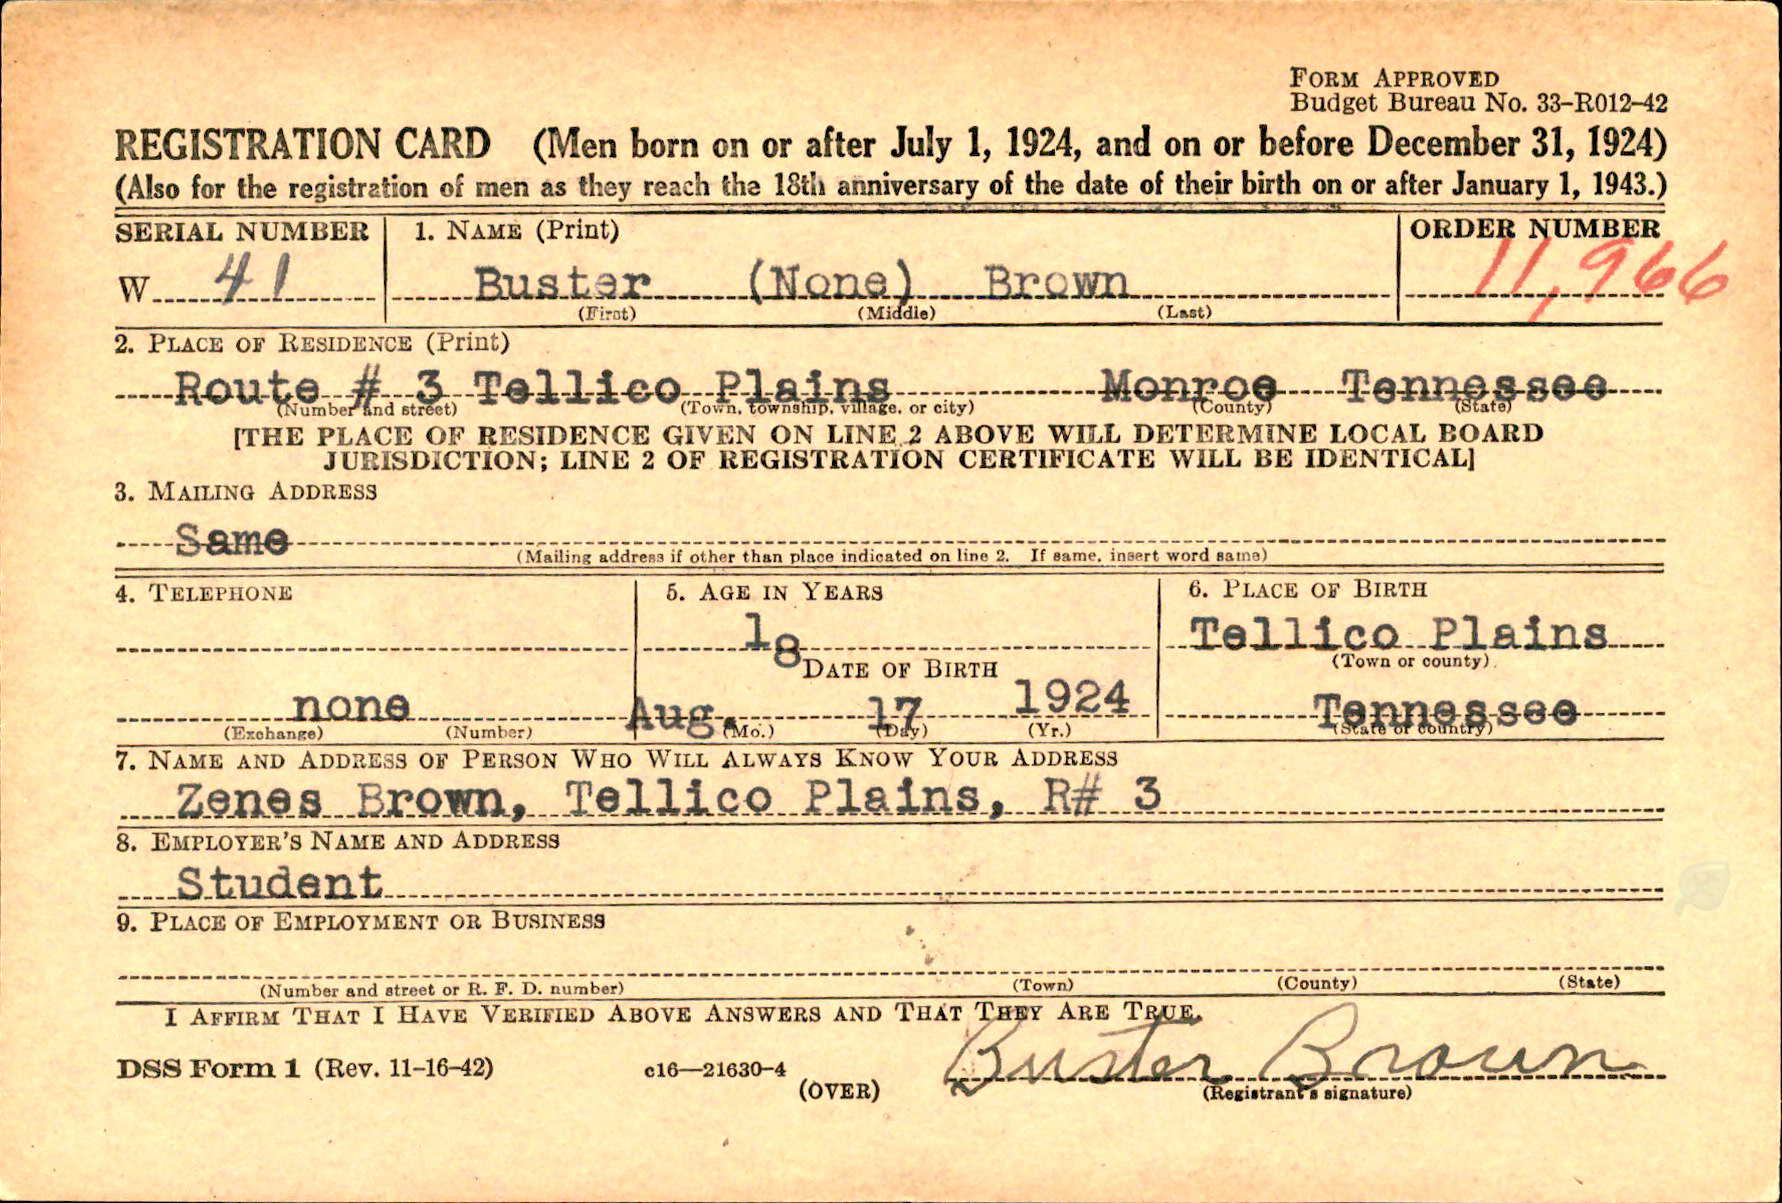 FORM APPROVED
Budget Bureau No. 33-R012-42
REGISTRATION CARD (Men born on or after July 1, 1924, and on or before December 31, 1924)
(Also for the registration of men as they reach the 18th anniversary of the date of their birth on or after January 1, 1943.)
SERIAL NUMBER 1. NAME (Print) ORDER NUMBER
W 41 Buster (None) Brown 11,966
(First) (Middle) (Last)
2. PLACE OF RESIDENCE (Print)
Route # 3 Tellico Plains Monroe Tennessee
(Number and street) (Town, township, village, or city) (County) (State)
[THE PLACE OF RESIDENCE GIVEN ON LINE 2 ABOVE WILL DETERMINE LOCAL BOARD
JURISDICTION; LINE 2 OF REGISTRATION CERTIFICATE WILL BE IDENTICAL]
3. MAILING ADDRESS
Same
(Mailing address if other than place indicated on line 2. If same, insert word same)
4. TELEPHONE 5. AGE IN YEARS 6. PLACE OF BIRTH
18 Tellico Plains
DATE OF BIRTH (Town or county)
none Aug. 17 1924 Tennessee
(Exchange) (Number) (Mo.) (Day) (Yr.) (State or country)
7. NAME AND ADDRESS OF PERSON WHO WILL ALWAYS KNOW YOUR ADDRESS
Zenes Brown, Tellico Plains, R# 3
8. EMPLOYER'S NAME AND ADDRESS
Student
9. PLACE OF EMPLOYMENT OR BUSINESS
(Number and street or R. F. D. number) (Town) (County) (State)
I AFFIRM THAT I HAVE VERIFIED ABOVE ANSWERS AND THAT THEY ARE TRUE.
DSS Form 1 (Rev. 11-16-42) c16—21630-4 Buster Brown
(OVER) (Registrant's signature)